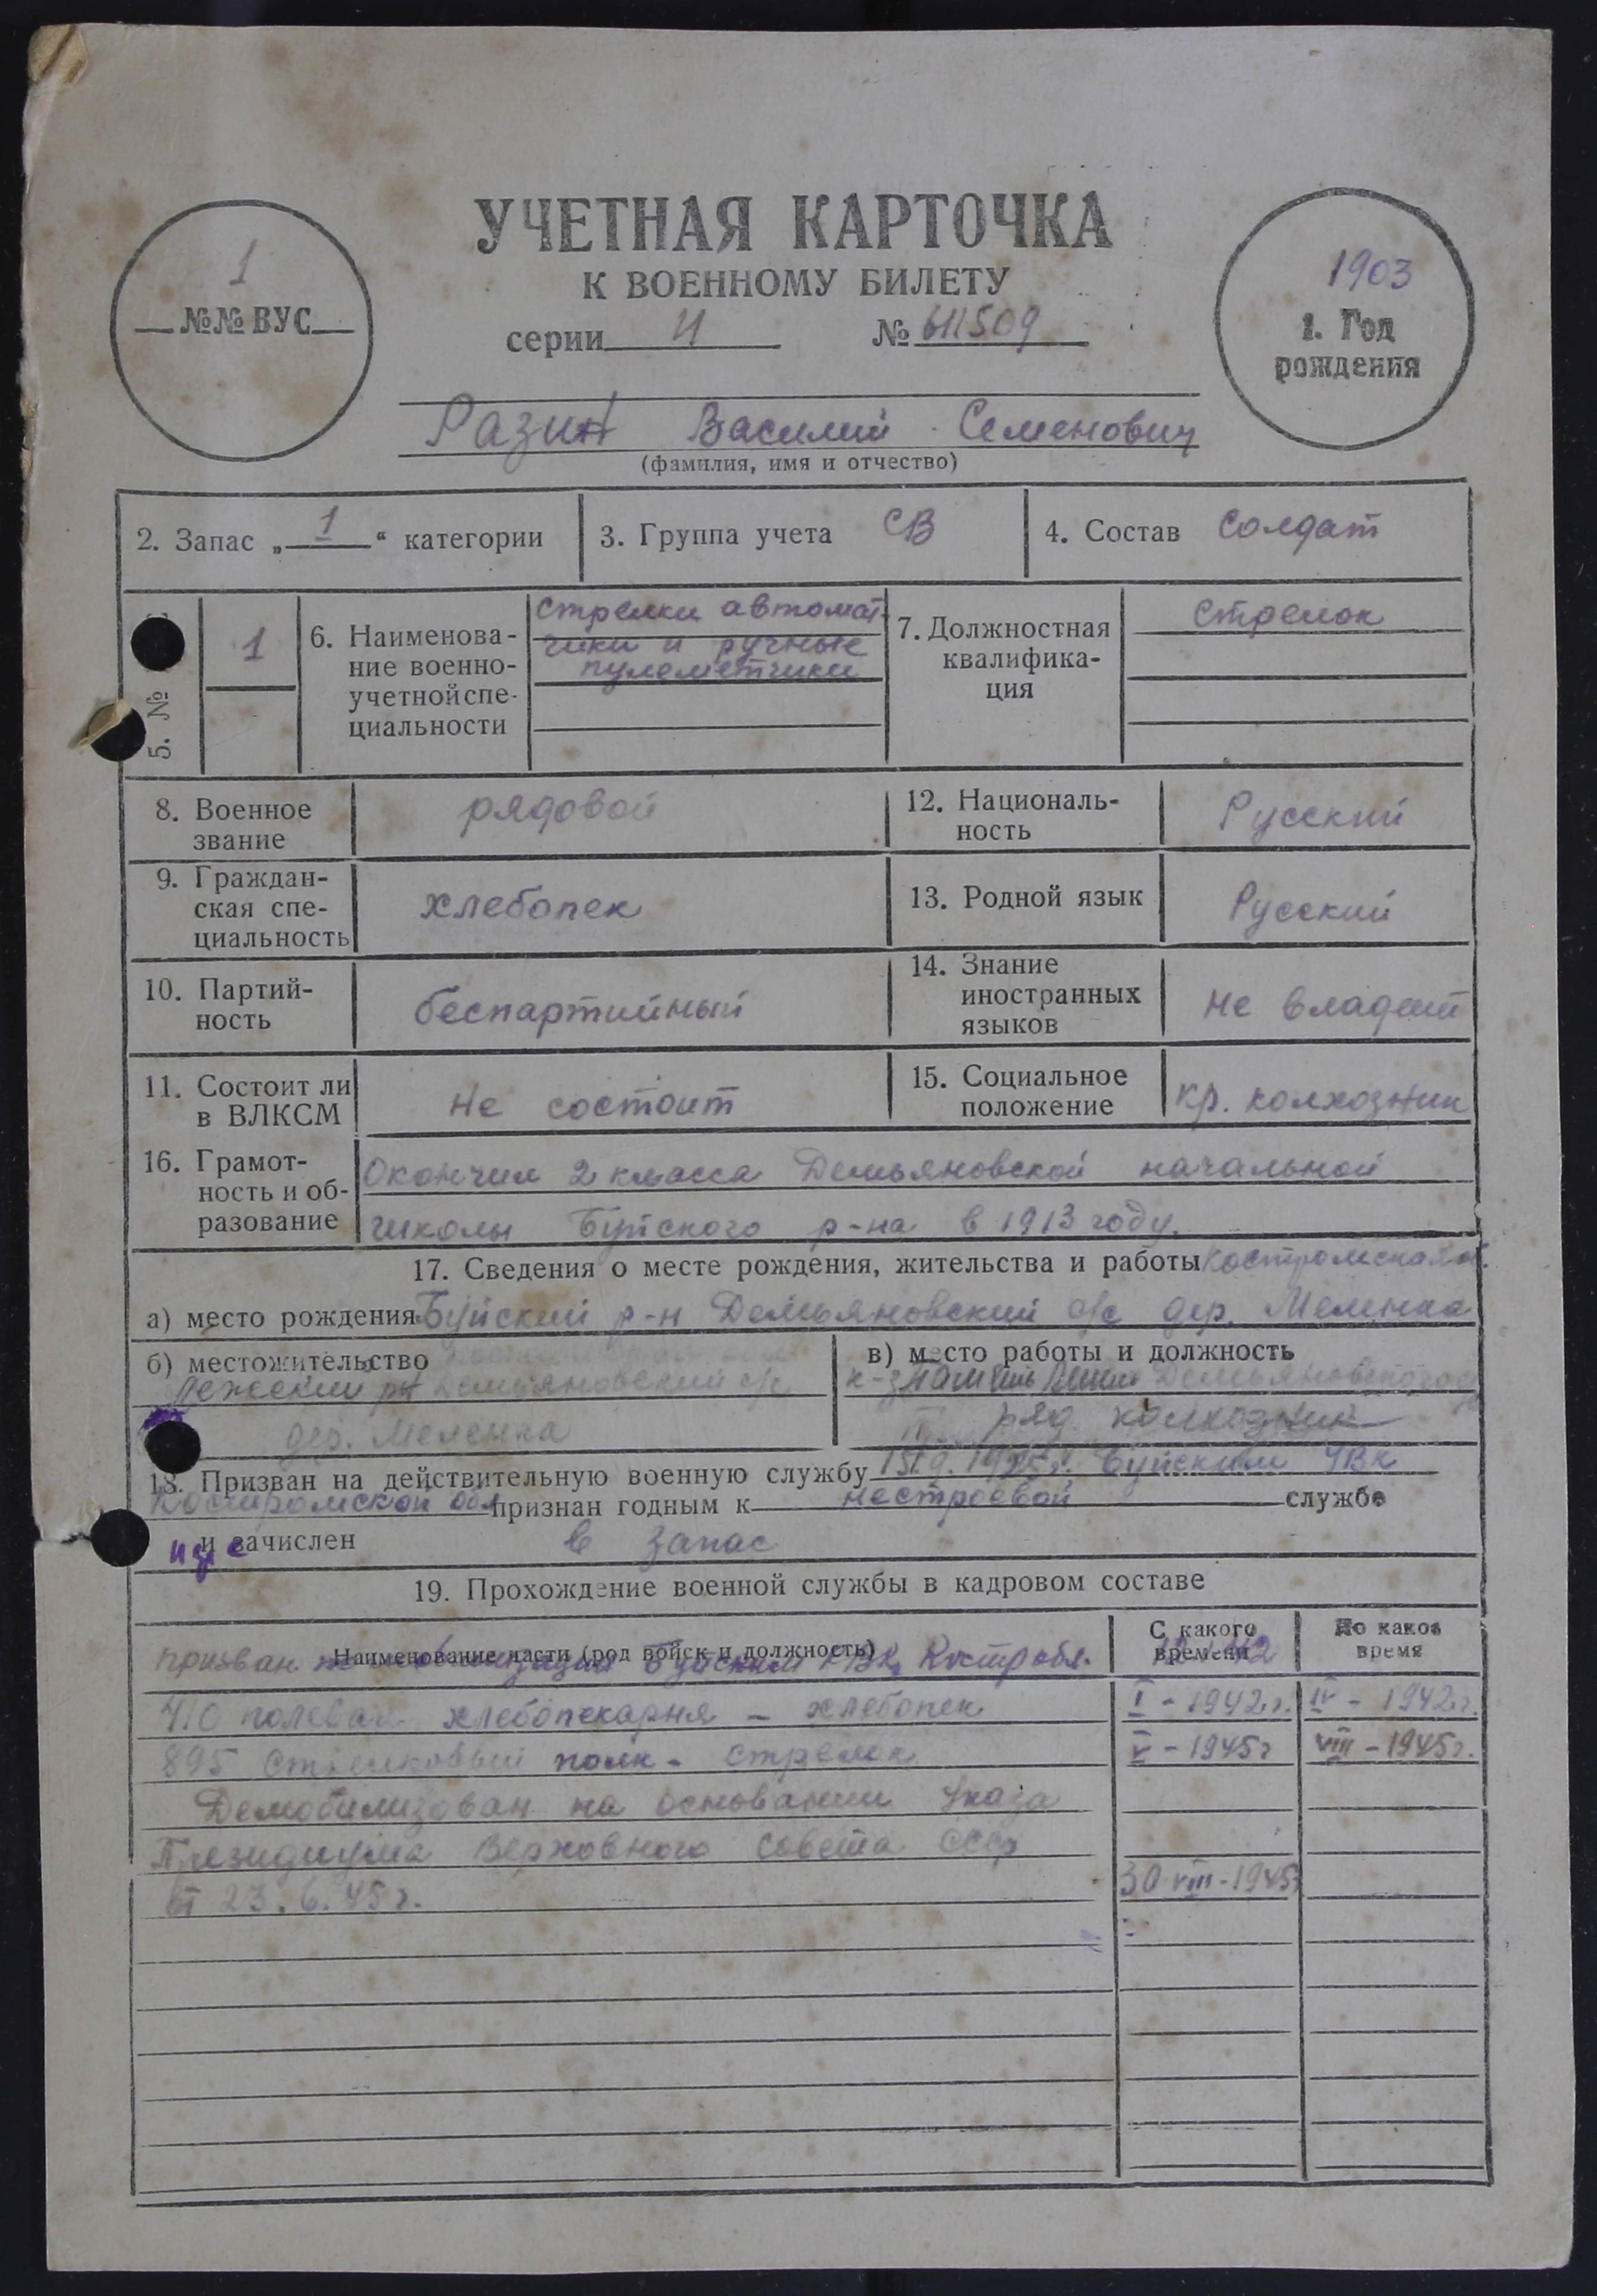 УЧЕТНАЯ КАРТОЧКА
К ВОЕННОМУ БИЛЕТУ
1
№№ ВУС
серии И № 611509
1903
1. Год
рождения
Разин Василий Семенович
(фамилия, имя и отчество)
2. Запас „ 1 “ категории
3. Группа учета СВ
4. Состав Солдат
5. №
1
6. Наименова-
ние военно-
учетной спе-
циальности
стрелки автомат-
чики и ручные
пулеметчики
7. Должностная
квалифика-
ция
Стрелок
8. Военное
звание
рядовой
12. Националь-
ность
Русский
9. Граждан-
ская спе-
циальность
хлебопек
13. Родной язык
Русский
10. Партий-
ность
беспартийный
14. Знание
иностранных
языков
не владеет
11. Состоит ли
в ВЛКСМ
не состоит
15. Социальное
положение
кр. колхозник
16. Грамот-
ность и об-
разование
Окончил 2 класса Демьяновской начальной
школы Буйского р-на в 1913 году.
17. Сведения о месте рождения, жительства и работы Костромская
а) место рождения Буйский р-н Демьяновский с/с дер. Меленка
б) местожительство
Демьяновский с/с
дер. Меленка
в) место работы и должность
Демьяновского
ряд. колхозник
18. Призван на действительную военную службу Буйским УВК
Костромской обл признан годным к нестроевой службе
и зачислен в запас
19. Прохождение военной службы в кадровом составе
Наименование части (род войск и должность)
С какого
времени
До какого
время
призван Буйским РВК Костр обл.
410 полевая хлебопекарня - хлебопек I - 1942 г. IV - 1942 г.
895 стрелковый полк - стрелок V - 1945 г VIII - 1945 г.
Демобилизован на основании Указа
Президиума Верховного Совета СССР
от 23.6.45 г. 30 VIII - 1945